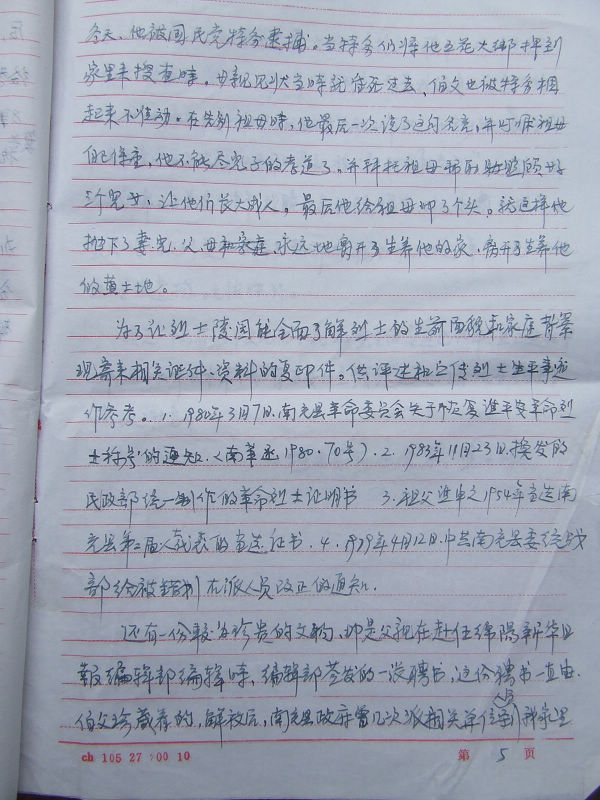 冬天，他被国民党特务逮捕。当特务们将他五花大绑押到
家里来搜查时。母亲见状当时就昏死过去，伯父也被特务捆
起来不准动。在告别祖母时，他最后一次说了这句名言，并叮嘱祖母
自己保重，他不能尽儿子的孝道了。并拜托祖母帮助照顾好
三个儿女，让他们长大成人。最后他给祖母叩了个头。就这样他
抛下了妻儿、父母和家庭、永远地离开了生养他的家，离开了生养他
的黄土地。
为了让烈士陵园能全面了解烈士的生前面貌和家庭背景
现寄来相关证件、资料的复印件。供评述和宣传烈士生平事迹
作参考。1. 1980年3月7日.南充县革命委员会关于恢复 平安革命烈
士称号的通知.〈南革函.1980.70号〉. 2. 1983年11月23日.换发的
民政部统一制作的革命烈士证明书 3.祖父 1954年当选南
充县第二届人民代表的当选证书. 4. 1979年4月12日.中共南充县委统战
部给被错划右派人员改正的通知.
还有一份较为珍贵的文物，即是父亲在赴任绵阳新华日
报编辑部编辑时，编辑部签发的一张聘书，这份聘书一直由.
伯父珍藏着的，解放后，南充县政府曾几次派相关单位人员到我家里
ch 105 27 700 10
第 5 页